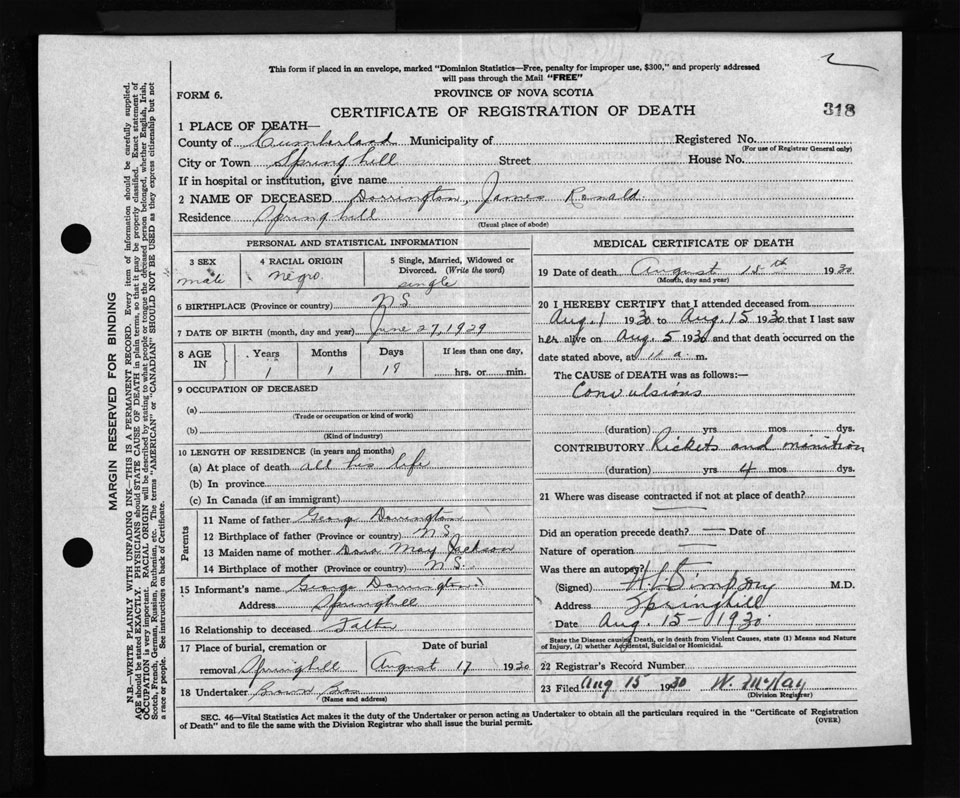 This form if placed in an envelope, marked "Dominion Statistics—Free, penalty for improper use, $300," and properly addressed
will pass through the Mail "FREE"
FORM 6.
PROVINCE OF NOVA SCOTIA
CERTIFICATE OF REGISTRATION OF DEATH
318
1 PLACE OF DEATH—
County of Cumberland Municipality of Registered No.
(For use of Registrar General only)
City or Town Springhill Street House No.
If in hospital or institution, give name
2 NAME OF DECEASED Dorrington, James Ronald
Residence Springhill
(Usual place of abode)
PERSONAL AND STATISTICAL INFORMATION
3 SEX
male
4 RACIAL ORIGIN
negro
5 Single, Married, Widowed or
Divorced. (Write the word)
single
6 BIRTHPLACE (Province or country) N S
7 DATE OF BIRTH (month, day and year) June 27, 1929
8 AGE IN
Years Months Days If less than one day,
1 1 hrs. or min.
9 OCCUPATION OF DECEASED
(a)
(Trade or occupation or kind of work)
(b)
(Kind of industry)
10 LENGTH OF RESIDENCE (in years and months)
(a) At place of death all his life
(b) In province
(c) In Canada (if an immigrant)
Parents
11 Name of father George Dorrington
12 Birthplace of father (Province or country) N S
13 Maiden name of mother Dora May Jackson
14 Birthplace of mother (Province or country) N S.
15 Informant's name George Dorrington
Address Springhill
16 Relationship to deceased Father
17 Place of burial, cremation or Date of burial
removal Springhill August 17 1930
18 Undertaker Brown Bros
(Name and address)
MEDICAL CERTIFICATE OF DEATH
19 Date of death August 15th 1930
(Month, day and year)
20 I HEREBY CERTIFY that I attended deceased from
Aug. 1 1930 to Aug. 15 1930 that I last saw
her alive on Aug. 5 1930 and that death occurred on the
date stated above, at 11 a. m.
The CAUSE of DEATH was as follows:—
Convulsions
(duration) yrs mos dys.
CONTRIBUTORY Rickets and
(duration) yrs 4 mos dys.
21 Where was disease contracted if not at place of death?
Did an operation precede death? — Date of
Nature of operation —
Was there an autopsy?
(Signed) Simpson M.D.
Address Springhill
Date Aug. 15 - 1930
State the Disease causing Death, or in death from Violent Causes, state (1) Means and Nature
of Injury, (2) whether Accidental, Suicidal or Homicidal.
22 Registrar's Record Number
23 Filed Aug 15 1930 W. McKay
(Division Registrar)
SEC. 46—Vital Statistics Act makes it the duty of the Undertaker or person acting as Undertaker to obtain all the particulars required in the "Certificate of Registration
of Death" and to file the same with the Division Registrar who shall issue the burial permit. (OVER)
MARGIN RESERVED FOR BINDING
N.B.—WRITE PLAINLY WITH UNFADING INK—THIS IS A PERMANENT RECORD. Every item of information should be carefully supplied.
AGE should be stated EXACTLY. PHYSICIANS should STATE CAUSE OF DEATH in plain terms, so that it may be properly classified. Exact statement of
OCCUPATION is very important. RACIAL ORIGIN will be described by stating to what people or tongue the deceased person belonged, whether English, Irish,
Scotch, French, German, Russian, Ruthenian, etc. The terms "AMERICAN" or "CANADIAN" SHOULD NOT BE USED as they express citizenship but not
a race or people. See instructions on back of Certificate.